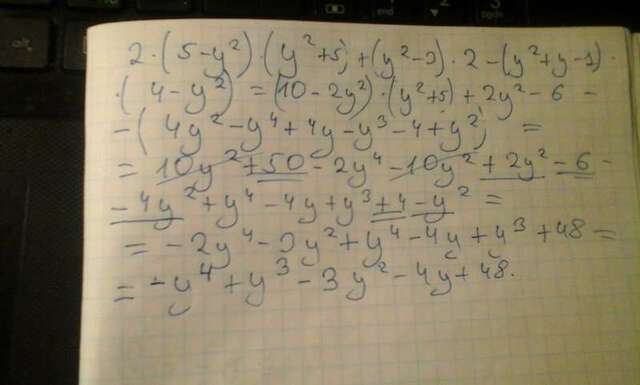 2·(5-y²)·(y²+5)+(y²-3)·2-(y²+y-1)·
·(4-y²)=(10-2y²)·(y²+5)+2y²-6-
-(4y²-y⁴+4y-y³-4+y²)=
=10y²+50-2y⁴-10y²+2y²-6-
-4y²+y⁴-4y+y³+4-y²=
=-2y⁴-3y²+y⁴-4y+y³+48=
=-y⁴+y³-3y²-4y+48.